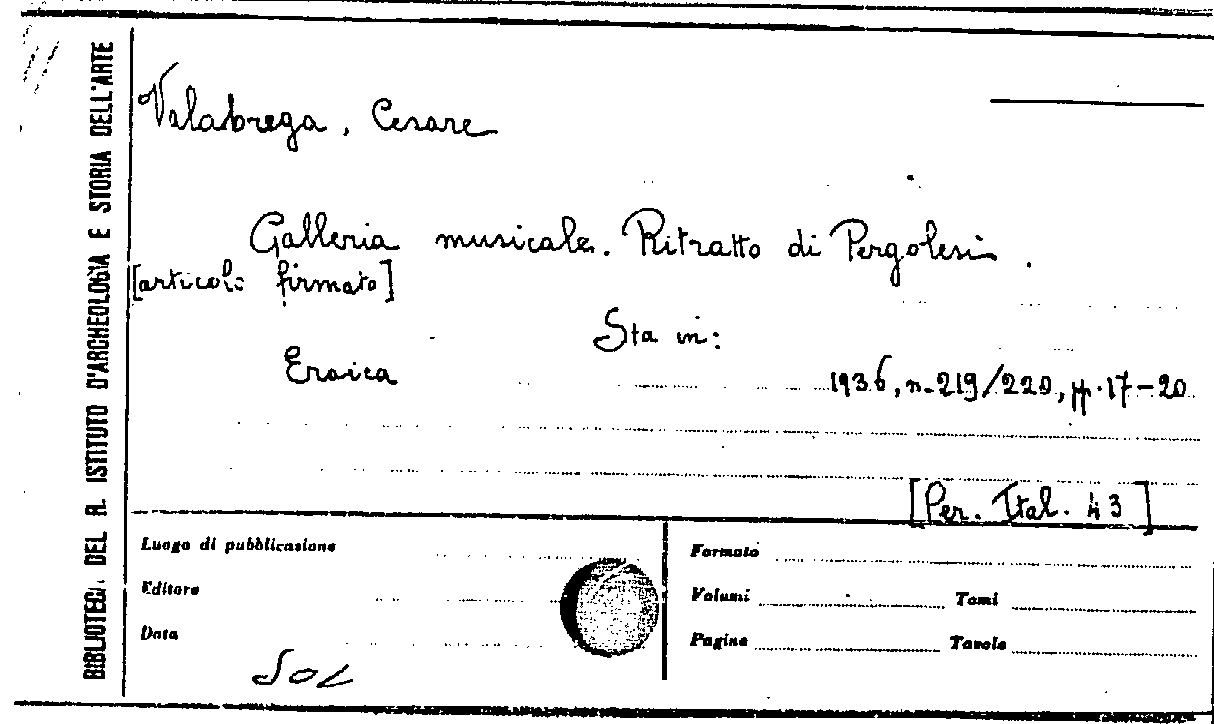 BIBLIOTECA DEL R. ISTITUTO D'ARCHEOLOGIA E STORIA DELL'ARTE
Valabrega, Cesare
Galleria musicale. Ritratto di Pergolesi.
[articolo firmato]
Sta in:
Eroica 1936, n. 219/220, pp. 17-20
[Per. Ital. 43]
Luogo di pubblicazione
Editore
Data
Formato
Volumi Tomi
Pagine Tavole